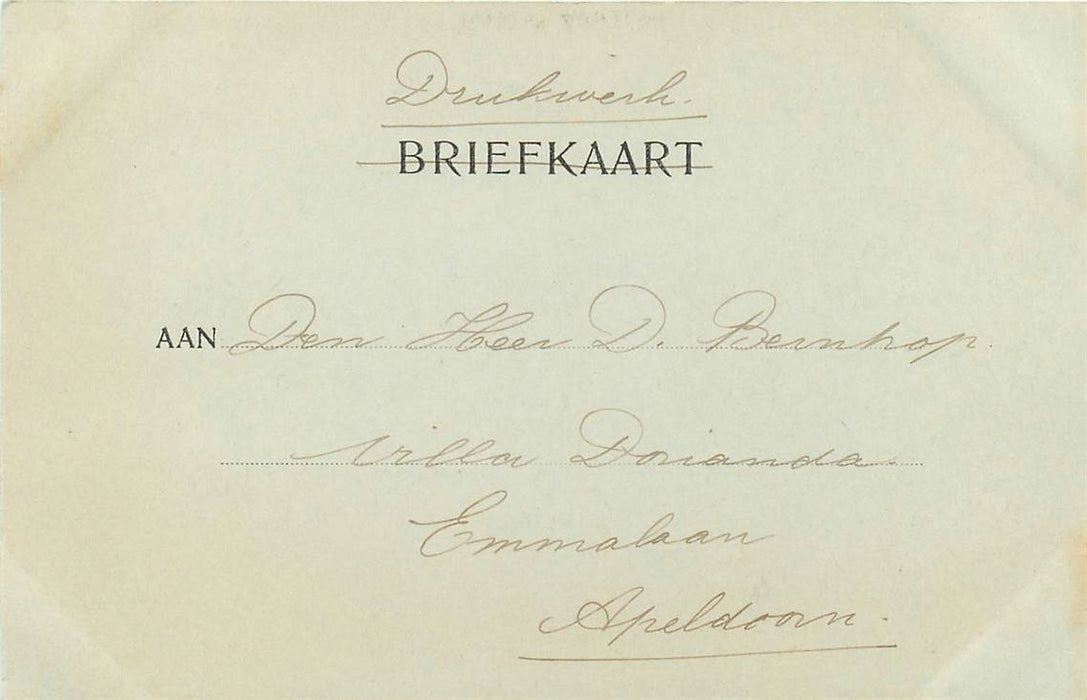 Drukwerk.
BRIEFKAART
AAN Den Heer D. Bernhop.
Villa Dorianda.
Emmalaan
Apeldoorn.